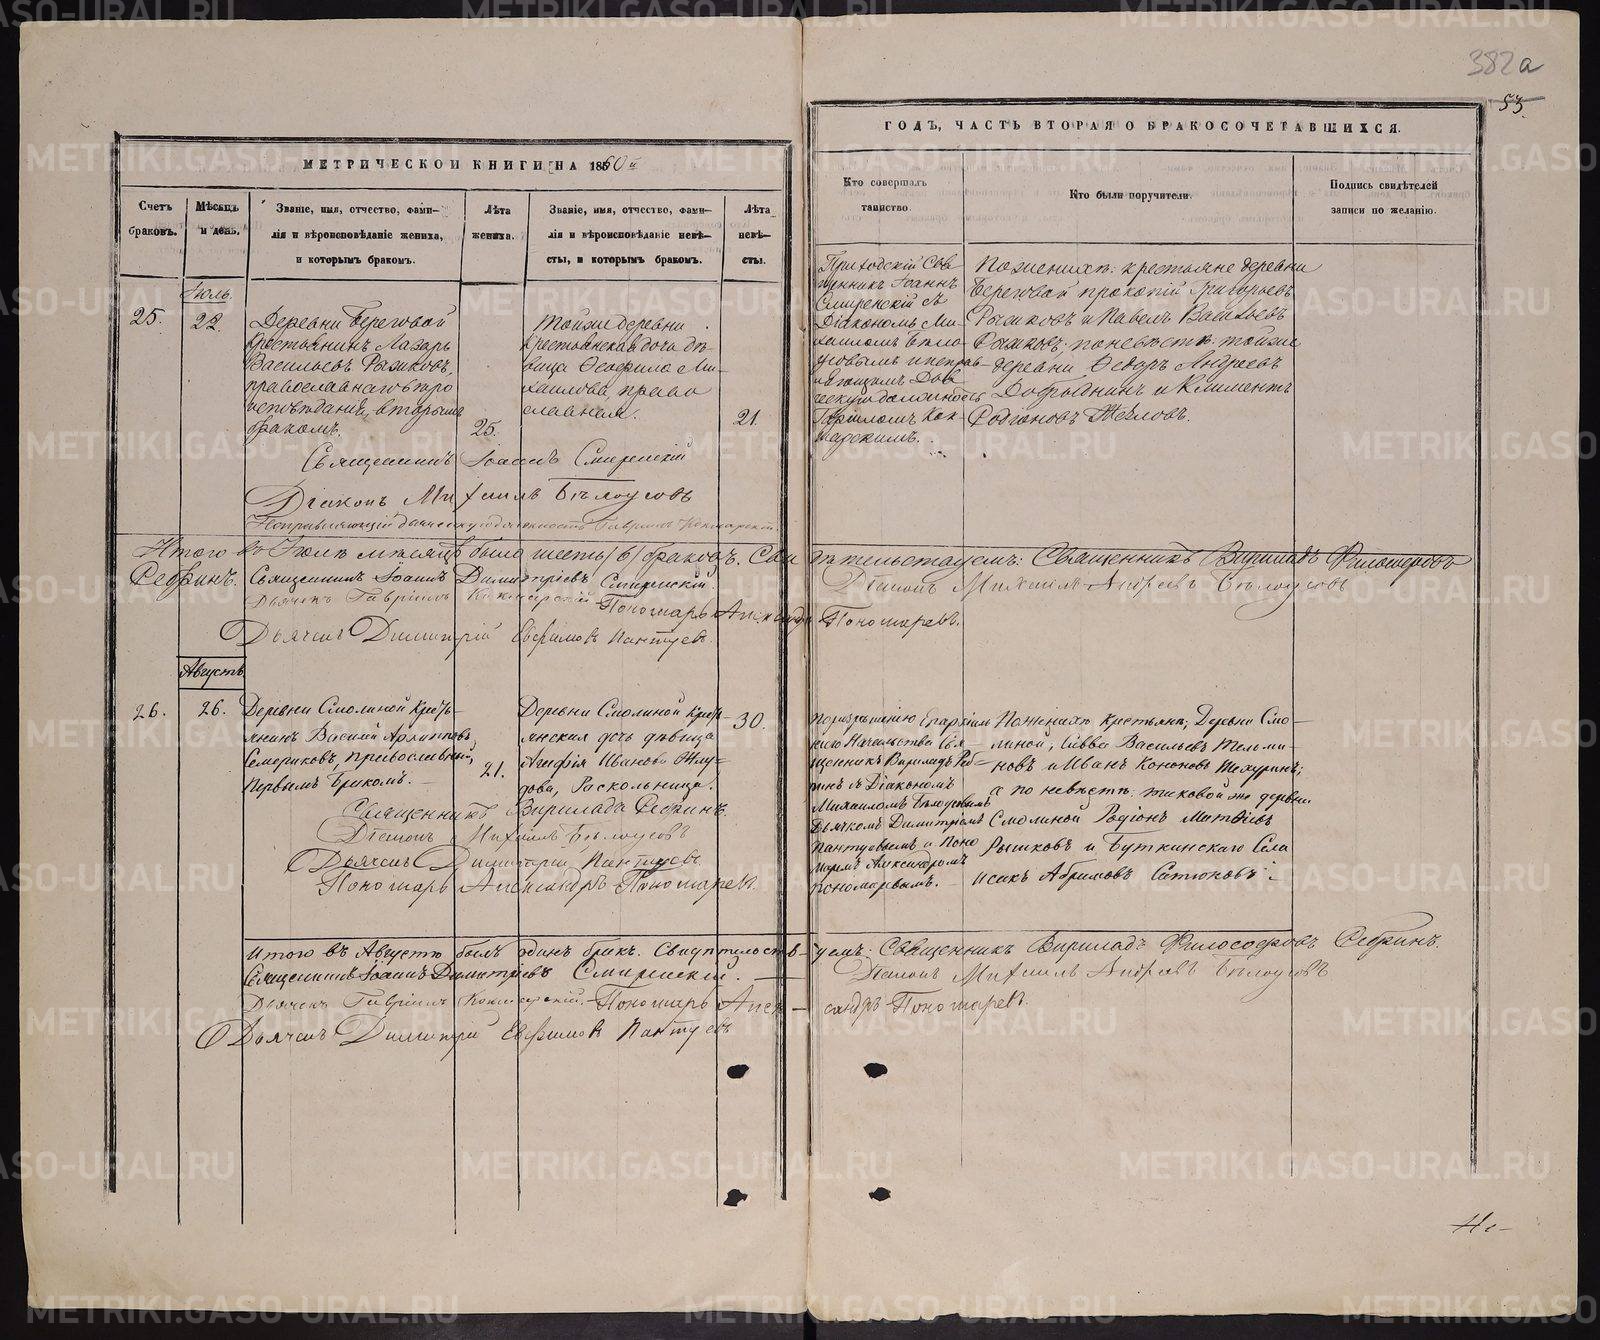 382а
53.
МЕТРИЧЕСКОЙ КНИГИ НА 1860й
ГОДЪ, ЧАСТЬ ВТОРАЯ О БРАКОСОЧЕТАВШИХСЯ.
Счетъ
браковъ.
Мѣсяцъ
и день.
Званіе, имя, отчество, фами-
лія и вѣроисповѣданіе жениха,
и которымъ бракомъ.
Лѣта
жениха.
Званіе, имя, отчество, фами-
лія и вѣроисповѣданіе невѣ-
сты, и которымъ бракомъ.
Лѣта
невѣ-
сты.
Кто совершалъ
таинство.
Кто были поручители.
Подпись свидѣтелей
записи по желанію.
Іюль.
25.
22.
Деревни Береговой
крестьянинъ Лазарь
Васильевъ Рыжковъ,
православнаго вѣро
исповѣданія, вторымъ
бракомъ.
25.
Той же деревни
крестьянская дочь дѣ-
вица Ѳеофила Ми-
хаилова, право
славная.
21.
Приходскій Свя-
щенникъ Іоаннъ
Смиренскій съ
Діакономъ Ми-
хаиломъ Бѣло-
усовымъ и исправ-
ляющимъ Дьяч-
ескую должность
Гавріиломъ Кок-
шарскимъ.
По женихѣ: крестьяне деревни
Береговой Прокопій Григорьевъ
Рыжковъ и Павелъ Васильевъ
Рыжковъ; по невѣстѣ: той же
деревни Ѳедоръ Андреевъ
Добрынинъ и Климентъ
Родіоновъ Жолловъ.
Священникъ Іоаннъ Смиренскій
Діаконъ Михаилъ Бѣлоусовъ
Исправляющій дьяческую должность Гавріилъ Кокшарскій.
Итого въ Іюлѣ мѣсяцѣ было шесть (6) браковъ. Свидѣтельствуемъ: Священникъ Вириладъ Философовъ
Ребринъ. Священникъ Іоаннъ Димитріевъ Смиренскій. Діаконъ Михаилъ Андреевъ Бѣлоусовъ
Дьячекъ Гавріилъ Кокшарскій Пономарь Александръ Пономаревъ.
Дьячекъ Димитрій Евфимовъ Пантуевъ.
Августъ
26.
26.
Деревни Смолиной Кресть-
янинъ Василій Архиповъ
Семериковъ, православный,
первымъ бракомъ.
21.
Деревни Смолиной Кресть-
янская дочь дѣвица
Агафія Иванова
Раскольница.
30.
По разрѣшенію Епархіаль
наго Начальства Свя-
щенникъ Вириладъ Реб-
ринъ съ Діакономъ
Михаиломъ Бѣлоусовымъ
Дьячкомъ Димитріемъ
Пантуевымъ и Поно
маремъ Александромъ
Пономаревымъ.
По женихѣ крестьяне; Деревни Смо-
линой, Савва Васильевъ Тельми-
новъ и Иванъ Кононовъ
а по невѣстѣ: таковой же деревни
Смолиной Родіонъ Матвѣевъ
Рышковъ и Буткинскаго Села
Исакъ Абрамовъ
Священникъ Вириладъ Ребринъ.
Діаконъ Михаилъ Бѣлоусовъ
Дьячекъ Димитрій Пантуевъ
Пономарь Александръ Пономаревъ.
Итого въ Августѣ былъ одинъ бракъ. Свидѣтельствуемъ: Священникъ Вириладъ Философовъ Ребринъ.
Священникъ Іоаннъ Димитріевъ Смиренскій. Діаконъ Михаилъ Андреевъ Бѣлоусовъ
Дьячекъ Гавріилъ Кокшарскій. Пономарь Александръ Пономаревъ.
Дьячекъ Димитрій Евфимовъ Пантуевъ
METRIKI.GASO-URAL.RU